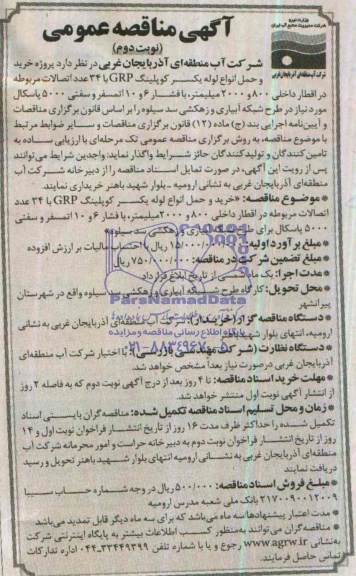 وزارت نیرو
شرکت مدیریت منابع آب ایران
شرکت آب منطقه‌ای آذربایجان غربی
آگهی مناقصه عمومی
(نوبت دوم)
شرکت آب منطقه‌ای آذربایجان غربی در نظر دارد پروژه خرید
و حمل انواع لوله یکسر کوپلینگ GRP با ۳۴ عدد اتصالات مربوطه
در اقطار داخلی ۸۰۰ و ۲۰۰۰ میلیمتر، با فشار ۶ و ۱۰ اتمسفر و سفتی ۵۰۰۰ پاسکال
مورد نیاز در طرح شبکه آبیاری و زهکشی سد سیلوه را بر اساس قانون برگزاری مناقصات
و آیین‌نامه اجرایی بند (ج) ماده (۱۲) قانون برگزاری مناقصات و سایر ضوابط مرتبط
با موضوع مناقصه، به روش برگزاری مناقصه عمومی تک مرحله‌ای با ارزیابی ساده به
تامین کنندگان و تولیدکنندگان حائز شرایط واگذار نماید؛ واجدین شرایط می‌توانند
پس از رویت این آگهی، در صورت تمایل اسناد مناقصه را از دبیرخانه شرکت آب
منطقه‌ای آذربایجان غربی به نشانی ارومیه ـ بلوار شهید باهنر خریداری نمایند.
* موضوع مناقصه: «خرید و حمل انواع لوله یکسر کوپلینگ GRP با ۳۴ عدد
اتصالات مربوطه در اقطار داخلی ۸۰۰ و ۲۰۰۰ میلیمتر، با فشار ۶ و ۱۰ اتمسفر و سفتی
۵۰۰۰ پاسکال برای طرح شبکه آبیاری و زهکشی سد سیلوه
* مبلغ برآورد اولیه: ریال با احتساب مالیات بر ارزش افزوده
* مبلغ تضمین شرکت در مناقصه: ۷۵۰/۰۰۰/۰۰۰ ریال
* مدت اجرا: یک ماه از تاریخ ابلاغ قرارداد
* محل تحویل: کارگاه طرح شبکه آبیاری و زهکشی سد سیلوه واقع در شهرستان
پیرانشهر
* دستگاه مناقصه گزار (خریدار): شرکت آب منطقه‌ای آذربایجان غربی به نشانی
ارومیه، انتهای بلوار شهید باهنر
* دستگاه نظارت (شرکت مهندسی بازرسی): با اختیار شرکت آب منطقه‌ای
آذربایجان غربی در صورت نیاز بعداً مشخص خواهد شد.
* مهلت خرید اسناد مناقصه: تا ۴ روز بعد از درج آگهی نوبت دوم که به فاصله ۲ روز
از انتشار آگهی نوبت اول منتشر خواهد شد.
* زمان و محل تسلیم اسناد مناقصه تکمیل شده: مناقصه‌گران بایستی اسناد
تکمیل شده را حداکثر ظرف مدت ۱۶ روز از تاریخ انتشار فراخوان نوبت اول و ۱۴
روز از تاریخ انتشار فراخوان نوبت دوم به دبیرخانه حراست و امور محرمانه شرکت آب
منطقه‌ای آذربایجان غربی به نشانی ارومیه انتهای بلوار شهید باهنر تحویل و رسید
دریافت نمایند
* مبلغ فروش اسناد مناقصه: ۵۰۰/۰۰۰ ریال در وجه شماره حساب سیبا
۲۱۷۰۰۹۰۰۱۲۰۰۹ بانک ملی شعبه مدرس ارومیه
* مدت اعتبار پیشنهادها سه ماه می‌باشد که برای سه ماه دیگر قابل تمدید می‌باشد
* مناقصه‌گران می‌توانند به‌منظور کسب اطلاعات بیشتر به پایگاه اینترنتی شرکت
به‌نشانی www.agrw.ir رجوع و یا با شماره تلفن ۰۴۴ـ۳۳۴۴۹۳۹۹ اداره تدارکات
تماس حاصل فرمایند.
ParsNamadData
پایگاه اطلاع رسانی مناقصه و مزایده
۰۲۱-۸۸۳۴۹۶۷۰-۵